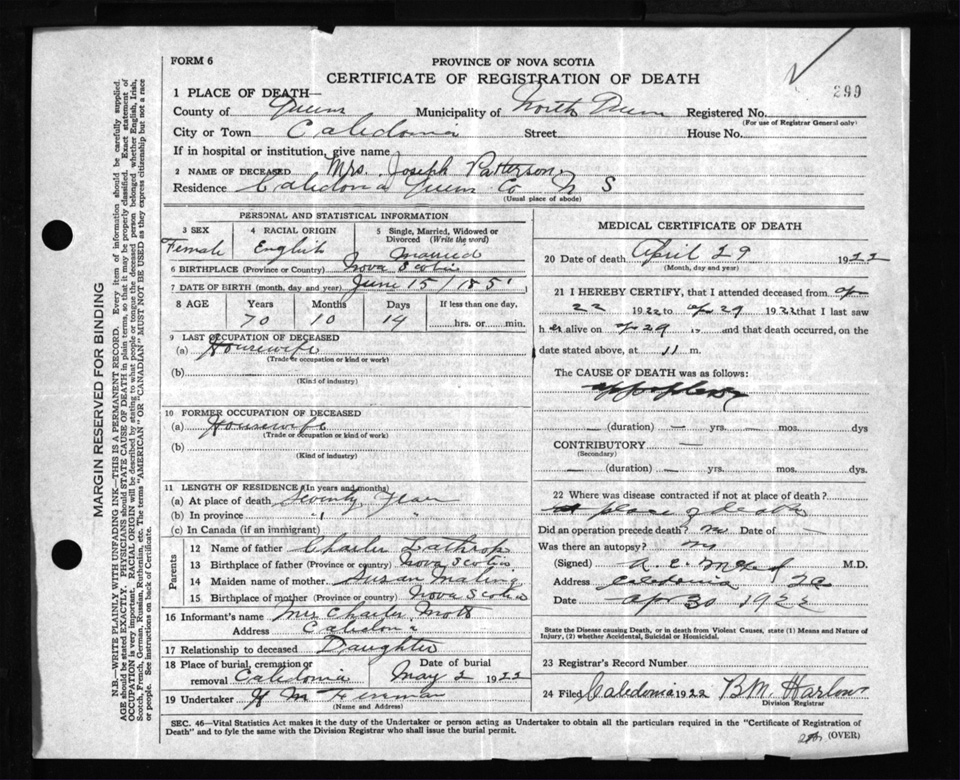 FORM 6
PROVINCE OF NOVA SCOTIA
CERTIFICATE OF REGISTRATION OF DEATH
299
1 PLACE OF DEATH—
County of Queens Municipality of North Queens Registered No.
(For use of Registrar General only)
City or Town Caledonia Street House No.
If in hospital or institution, give name
2 NAME OF DECEASED Mrs. Joseph Patterson
Residence Caledonia Queens Co N S
(Usual place of abode)
PERSONAL AND STATISTICAL INFORMATION
3 SEX Female
4 RACIAL ORIGIN English
5 Single, Married, Widowed or Divorced (Write the word) Married
6 BIRTHPLACE (Province or Country) Nova Scotia
7 DATE OF BIRTH (month, day and year) June 15/1851
8 AGE Years Months Days If less than one day,
70 10 14 hrs. or min.
9 LAST OCCUPATION OF DECEASED
(a) Housewife
(Trade or occupation or kind of work)
(b)
(Kind of industry)
10 FORMER OCCUPATION OF DECEASED
(a) Housewife
(Trade or occupation or kind of work)
(b)
(Kind of industry)
11 LENGTH OF RESIDENCE (In years and months)
(a) At place of death Seventy Years
(b) In province " "
(c) In Canada (if an immigrant)
Parents
12 Name of father Charles Lathrop
13 Birthplace of father (Province or country) Nova Scotia
14 Maiden name of mother Susan
15 Birthplace of mother (Province or country) Nova Scotia
16 Informant's name Mrs Charles Mott
Address Caledonia
17 Relationship to deceased Daughter
18 Place of burial, cremation or removal Caledonia Date of burial May 2 1922
19 Undertaker H M
(Name and Address)
MEDICAL CERTIFICATE OF DEATH
20 Date of death April 29 1922
(Month, day and year)
21 I HEREBY CERTIFY, that I attended deceased from Apr
22 1922 to Apr 29 1922 that I last saw
h er alive on Apr 29 19 and that death occurred, on the
date stated above, at 11 m.
The CAUSE OF DEATH was as follows:
appoplexy
— (duration) — yrs. — mos. dys
CONTRIBUTORY —
(Secondary)
— (duration) — yrs. mos. dys.
22 Where was disease contracted if not at place of death?
place of death
Did an operation precede death? no Date of
Was there an autopsy? no
(Signed) M.D.
Address Caledonia
Date Apr 30 1922
State the Disease causing Death, or in death from Violent Causes, state (1) Means and Nature of
Injury, (2) whether Accidental, Suicidal or Homicidal.
23 Registrar's Record Number
24 Filed Caledonia 1922 B.M. Harlow
Division Registrar
SEC. 46—Vital Statistics Act makes it the duty of the Undertaker or person acting as Undertaker to obtain all the particulars required in the "Certificate of Registration of
Death" and to fyle the same with the Division Registrar who shall issue the burial permit.
(OVER)
MARGIN RESERVED FOR BINDING
N.B.—WRITE PLAINLY WITH UNFADING INK—THIS IS A PERMANENT RECORD. Every item of information should be carefully supplied.
AGE should be stated EXACTLY. PHYSICIANS should STATE CAUSE OF DEATH in plain terms, so that it may be properly classified. Exact statement of
OCCUPATION is very important. RACIAL ORIGIN will be described by stating to what people or tongue the deceased person belonged whether English, Irish,
Scotch, French, German, Russian, Ruthenian, etc. The terms "AMERICAN" OR "CANADIAN" MUST NOT BE USED as they express citizenship but not a race
or people. See instructions on back of Certificate.